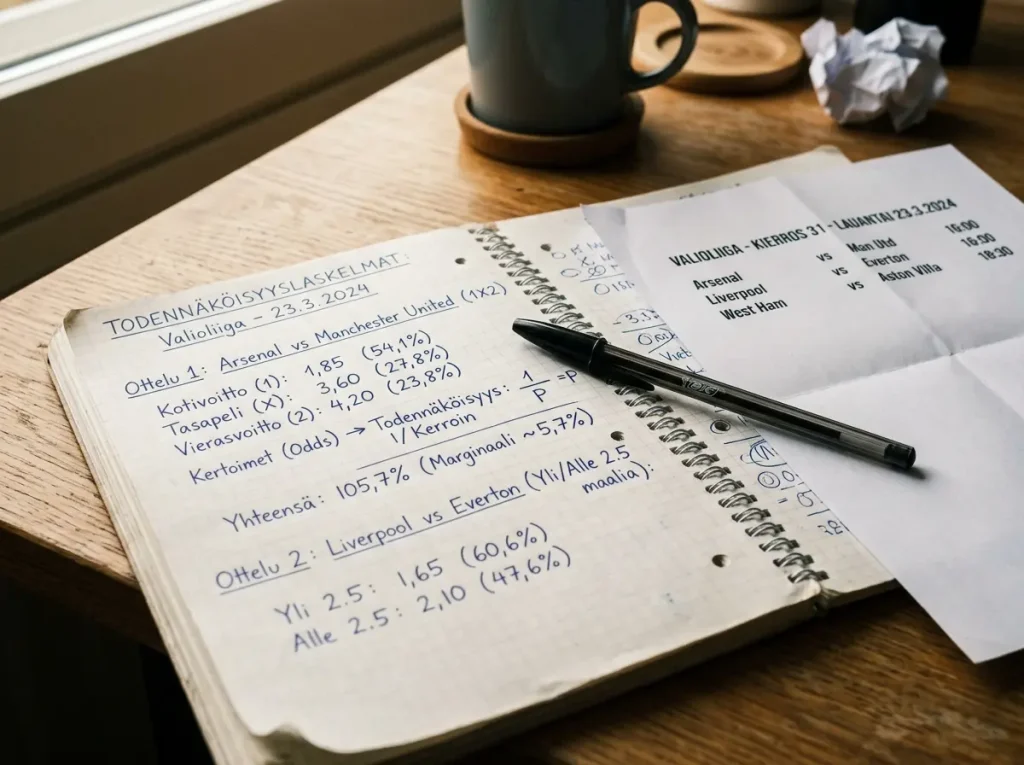 TODENNÄKÖISYYSLASKELMAT:
Valioliiga - 23.3.2024
Ottelu 1: Arsenal vs Manchester United (1X2)
Kotivoitto (1): 1,85 (54,1%)
Tasapeli (X): 3,60 (27,8%)
Vierasvoitto (2): 4,20 (23,8%)
Kertoimet (Odds) → Todennäköisyys: 1/P = P
1/Kerroin
Yhteensä: 105,7% (Marginaali ~5,7%)
Ottelu 2: Liverpool vs Everton (Yli/Alle 2.5
maalia):
Yli 2.5: 1,65 (60,6%)
Alle 2.5: 2,10 (47,6%)
VALIOLIIGA - KIERROS 31 - LAUANTAI 23.3.2024
Arsenal vs Man Utd 16:00
Liverpool vs Everton 16:00
West Ham vs Aston Villa 18:30